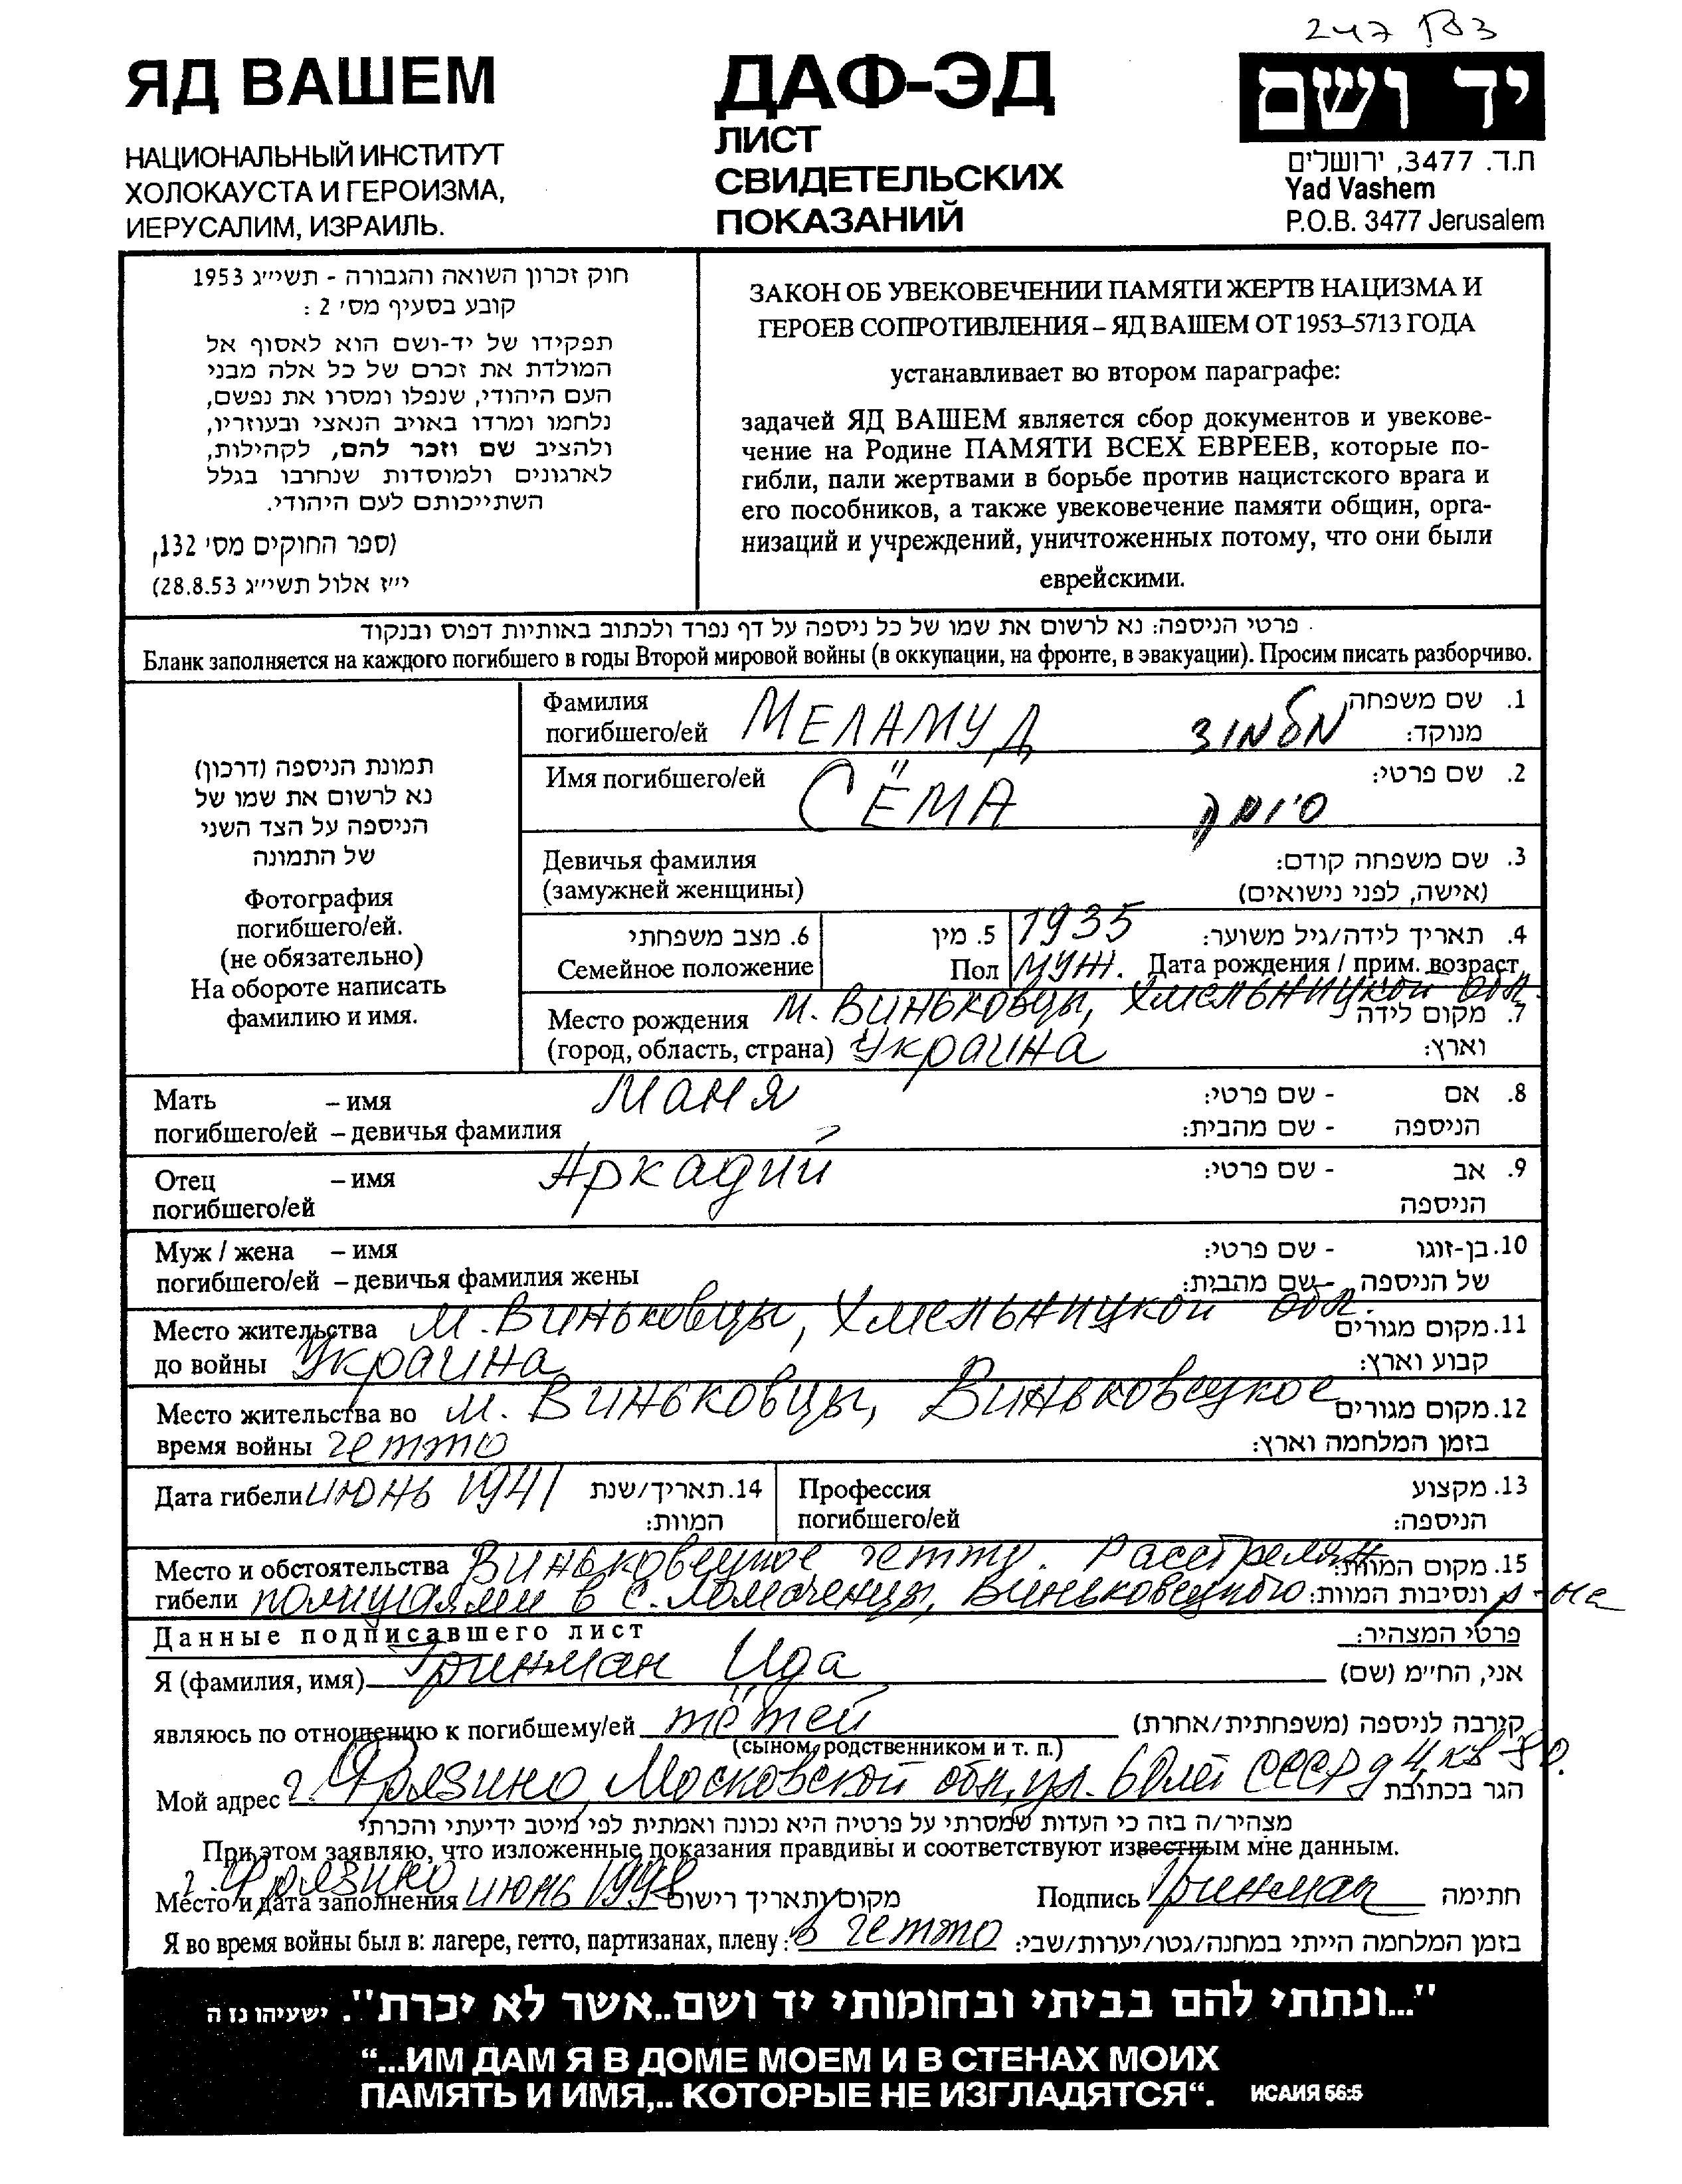 247 ВЗ
ЯД ВАШЕМ
НАЦИОНАЛЬНЫЙ ИНСТИТУТ
ХОЛОКАУСТА И ГЕРОИЗМА,
ИЕРУСАЛИМ, ИЗРАИЛЬ.
ДАФ-ЭД
ЛИСТ
СВИДЕТЕЛЬСКИХ
ПОКАЗАНИЙ
יד ושם
ת.ד. 3477, ירושלים
Yad Vashem
P.O.B. 3477 Jerusalem
חוק זכרון השואה והגבורה - תשי״ג 1953
קובע בסעיף מס׳ 2 :
תפקידו של יד-ושם הוא לאסוף אל
המולדת את זכרם של כל אלה מבני
העם היהודי, שנפלו ומסרו את נפשם,
נלחמו ומרדו באויב הנאצי ובעוזריו,
ולהציב שם וזכר להם, לקהילות,
לארגונים ולמוסדות שנחרבו בגלל
השתייכותם לעם היהודי.
(ספר החוקים מס׳ 132,
י״ז אלול תשי״ג 28.8.53)
ЗАКОН ОБ УВЕКОВЕЧЕНИИ ПАМЯТИ ЖЕРТВ НАЦИЗМА И
ГЕРОЕВ СОПРОТИВЛЕНИЯ – ЯД ВАШЕМ ОТ 1953–5713 ГОДА
устанавливает во втором параграфе:
задачей ЯД ВАШЕМ является сбор документов и увекове-
чение на Родине ПАМЯТИ ВСЕХ ЕВРЕЕВ, которые по-
гибли, пали жертвами в борьбе против нацистского врага и
его пособников, а также увековечение памяти общин, орга-
низаций и учреждений, уничтоженных потому, что они были
еврейскими.
פרטי הניספה: נא לרשום את שמו של כל ניספה על דף נפרד ולכתוב באותיות דפוס ובנקוד
Бланк заполняется на каждого погибшего в годы Второй мировой войны (в оккупации, на фронте, в эвакуации). Просим писать разборчиво.
תמונת הניספה (דרכון)
נא לרשום את שמו של
הניספה על הצד השני
של התמונה
Фотография
погибшего/ей.
(не обязательно)
На обороте написать
фамилию и имя.
Фамилия МЕЛАМУД מלמוד 1. שם משפחה
погибшего/ей מנוקד:
Имя погибшего/ей СЁМА סיומה 2. שם פרטי:
Девичья фамилия 3. שם משפחה קודם:
(замужней женщины) (אישה, לפני נישואים)
6. מצב משפחתי 5. מין 1935 4. תאריך לידה/גיל משוער:
Семейное положение Пол муж. Дата рождения / прим. возраст
Место рождения м. Виньковцы, Хмельницкой обл. 7. מקום לידה
(город, область, страна) Украина וארץ:
Мать – имя Маня 8. אם - שם פרטי:
погибшего/ей – девичья фамилия הניספה - שם מהבית:
Отец – имя Аркадий 9. אב - שם פרטי:
погибшего/ей הניספה
Муж / жена – имя 10. בן-זוגו - שם פרטי:
погибшего/ей – девичья фамилия жены של הניספה - שם מהבית:
Место жительства м. Виньковцы, Хмельницкой обл. 11. מקום מגורים
до войны Украина קבוע וארץ:
Место жительства во м. Виньковцы, Виньковецкое 12. מקום מגורים
время войны гетто בזמן המלחמה וארץ:
Дата гибели июнь 1941 14. תאריך/שנת המוות:
Профессия 13. מקצוע
погибшего/ей הניספה:
Место и обстоятельства Виньковецкое гетто. Расстрелян 15. מקום המוות
гибели полицаями в с. Ломаченцы, Виньковецкого р-на ונסיבות המוות:
Данные подписавшего лист פרטי המצהיר:
Я (фамилия, имя) Гринман Ида אני, הח״מ (שם)
являюсь по отношению к погибшему/ей тётей קירבה לניספה (משפחתית/אחרת)
(сыном, родственником и т. п.)
Мой адрес г. Фрязино, Московской обл, ул. 60 лет СССР д 4, кв 80. הגר בכתובת
מצהיר/ה בזה כי העדות שמסרתי על פרטיה היא נכונה ואמתית לפי מיטב ידיעתי והכרתי
При этом заявляю, что изложенные показания правдивы и соответствуют известным мне данным.
г. Фрязино
Место и дата заполнения июнь 1998 מקום ותאריך רישום Подпись Гринман חתימה
Я во время войны был в: лагере, гетто, партизанах, плену: в гетто בזמן המלחמה הייתי במחנה/גטו/יערות/שבי:
"...ונתתי להם בביתי ובחומותי יד ושם..אשר לא יכרת". ישעיהו נז ה
“...ИМ ДАМ Я В ДОМЕ МОЕМ И В СТЕНАХ МОИХ
ПАМЯТЬ И ИМЯ,.. КОТОРЫЕ НЕ ИЗГЛАДЯТСЯ“. ИСАИЯ 56:5